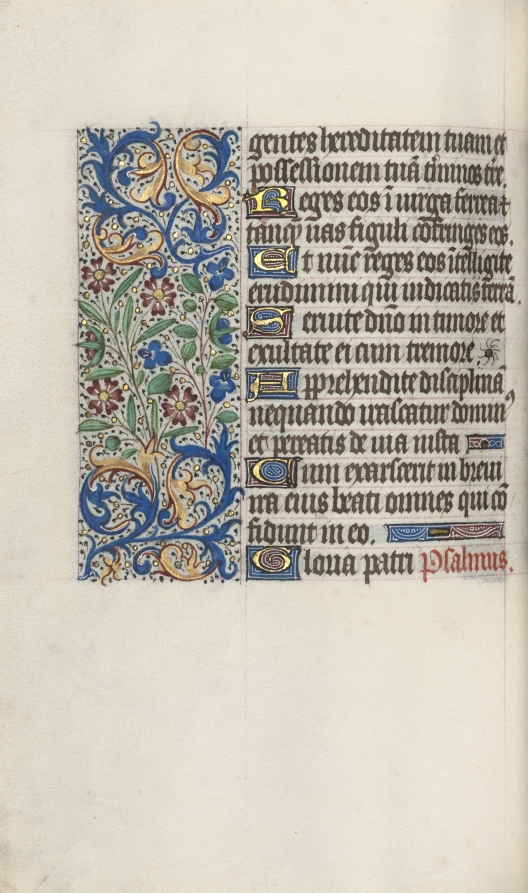 gentes hereditatem tuam et
possessionem tuā t̄minos t̄re.
Reges eos ī uirga ferrea ⁊
tanqȝ uas figuli cōfringes eos.
Et nūc reges eos ītelligite
erudimini qui iudicatis terrā
Seruite dn̄o in timore et
exultate ei cum tremore
Apprehendite disciplinā
nequando irascatur dominꝰ
et pereatis de uia iusta
Cum exarscerit in breui
ira eius beati omnes qui cō
fidunt in eo.
Gloria patri Psalmus.